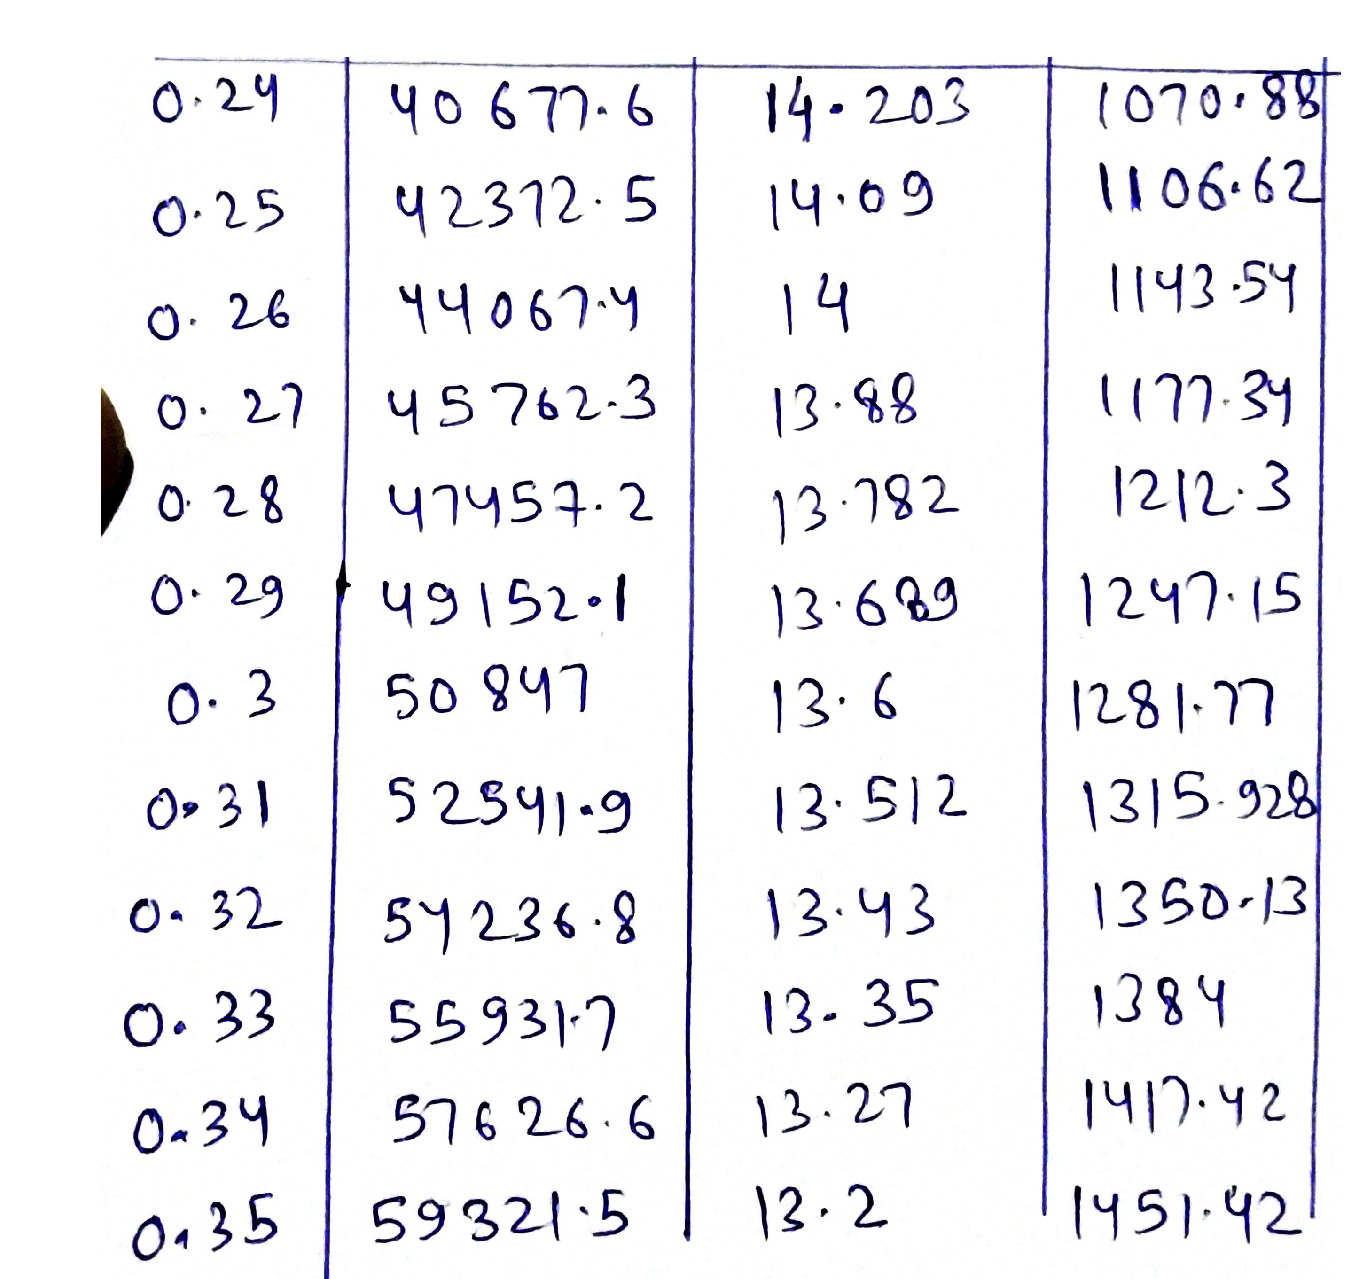 0.24 40677.6 14.203 1070.88
0.25 42372.5 14.09 1106.62
0.26 44067.4 14 1143.54
0.27 45762.3 13.88 1177.34
0.28 47457.2 13.782 1212.3
0.29 49152.1 13.689 1247.15
0.3 50847 13.6 1281.77
0.31 52541.9 13.512 1315.928
0.32 54236.8 13.43 1350.13
0.33 55931.7 13.35 1384
0.34 57626.6 13.27 1417.42
0.35 59321.5 13.2 1451.42